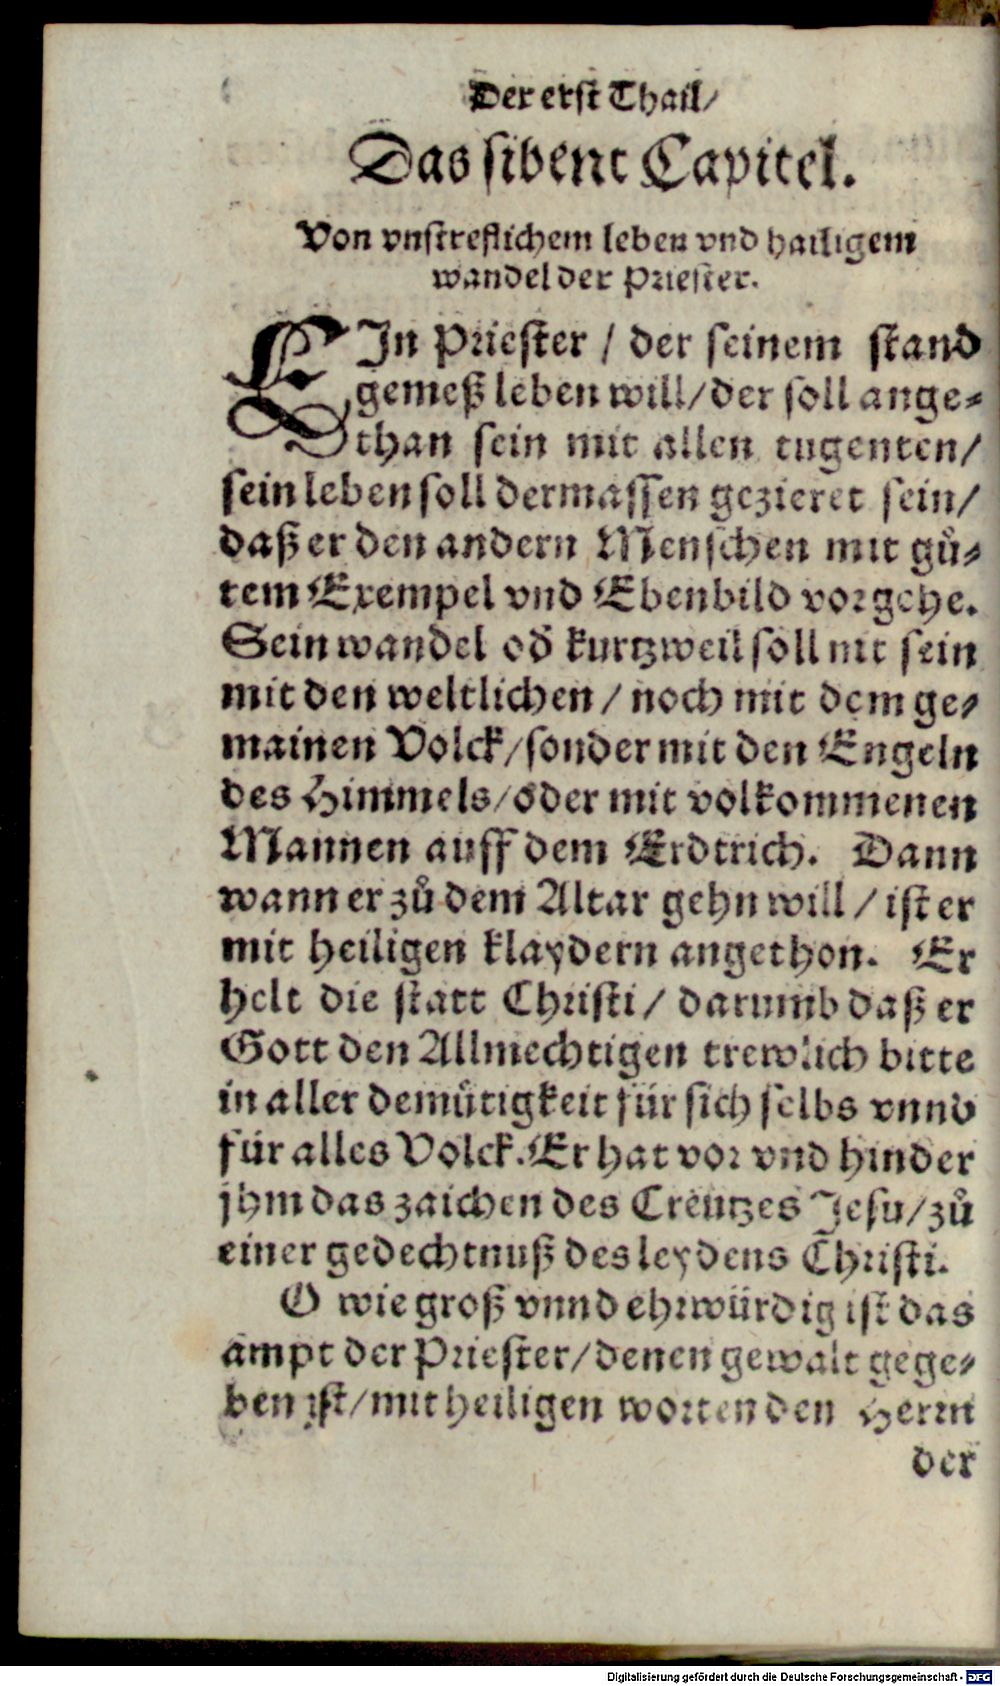 Der erst Thail/
Das sibent Capitel.
Von vnstreflichem leben vnd hailigem
wandel der Priester.
EIn Priester / der seinem stand
gemeß leben will/der soll ange⸗
than sein mit allen tugenten/
sein leben soll dermassen gezieret sein/
daß er den andern Menschen mit gů⸗
tem Exempel vnd Ebenbild vorgehe.
Sein wandel od̄ kurtzweil soll nit sein
mit den weltlichen / noch mit dem ge⸗
mainen Volck/sonder mit den Engeln
des Himmels/oder mit volkommenen
Mannen auff dem Erdtrich. Dann
wann er zů dem Altar gehn will / ist er
mit heiligen klaydern angethon. Er
helt die statt Christi/ darumb daß er
Gott den Allmechtigen trewlich bitte
in aller demůtigkeit für sich selbs vnnd
für alles Volck. Er hat vor vnd hinder
jhm das zaichen des Creutzes Jesu/zů
einer gedechtnuß des leydens Christi.
O wie groß vnnd ehrwürdig ist das
ampt der Priester/denen gewalt gege⸗
ben ist/mit heiligen worten den Herrn
der
Digitalisierung gefördert durch die Deutsche Forschungsgemeinschaft - DFG